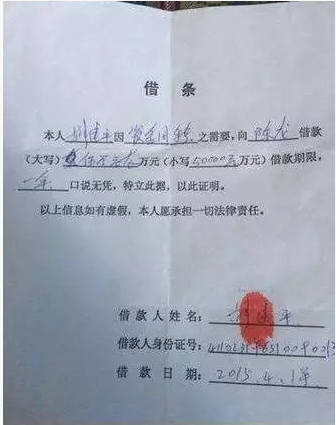 借条
本人 建平因资金周转之需要,向 陈龙 借款
(大写)伍万元 万元(小写50000元万元)借款期限,
一年 口说无凭,特立此据,以此证明。
以上信息如有虚假,本人愿承担一切法律责任。
借款人姓名: 建平
借款人身份证号:
借款日期:2015.4.1